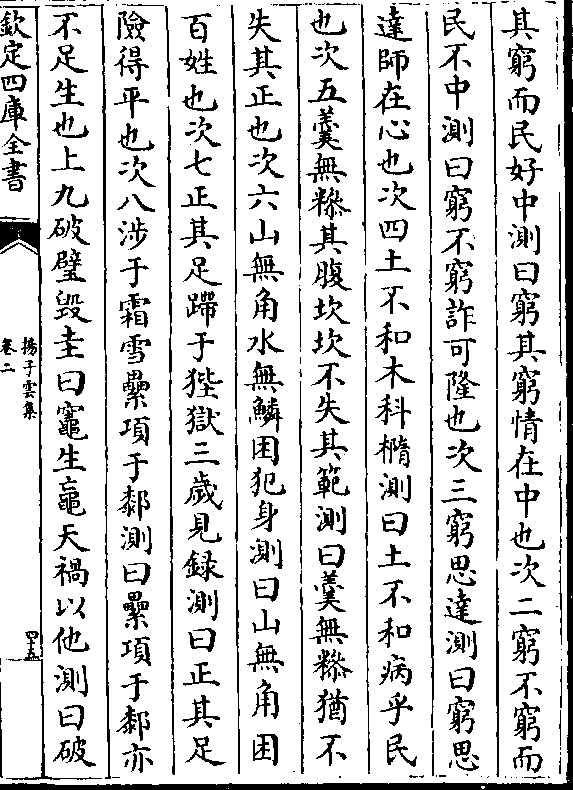 其窮而民好中測曰窮其窮情在中也次二窮不窮而
民不中測曰窮不窮詐可隆也次三窮思達測曰窮思
達師在心也次四土不和木科橢測曰土不和病乎民
也次五羹無糝其腹坎坎不失其範測曰羹無糝猶不
失其正也次六山無角水無鱗困犯身測曰山無角困
百姓也次七正其足蹛于狴獄三歲見録測曰正其足
險得平也次八涉于霜雪纍項于郗測曰纍項于郗亦
不足生也上九破璧毁圭曰竈生鼃天禍以他測曰破
欽定四庫全書
揚子雲集
卷二
四五